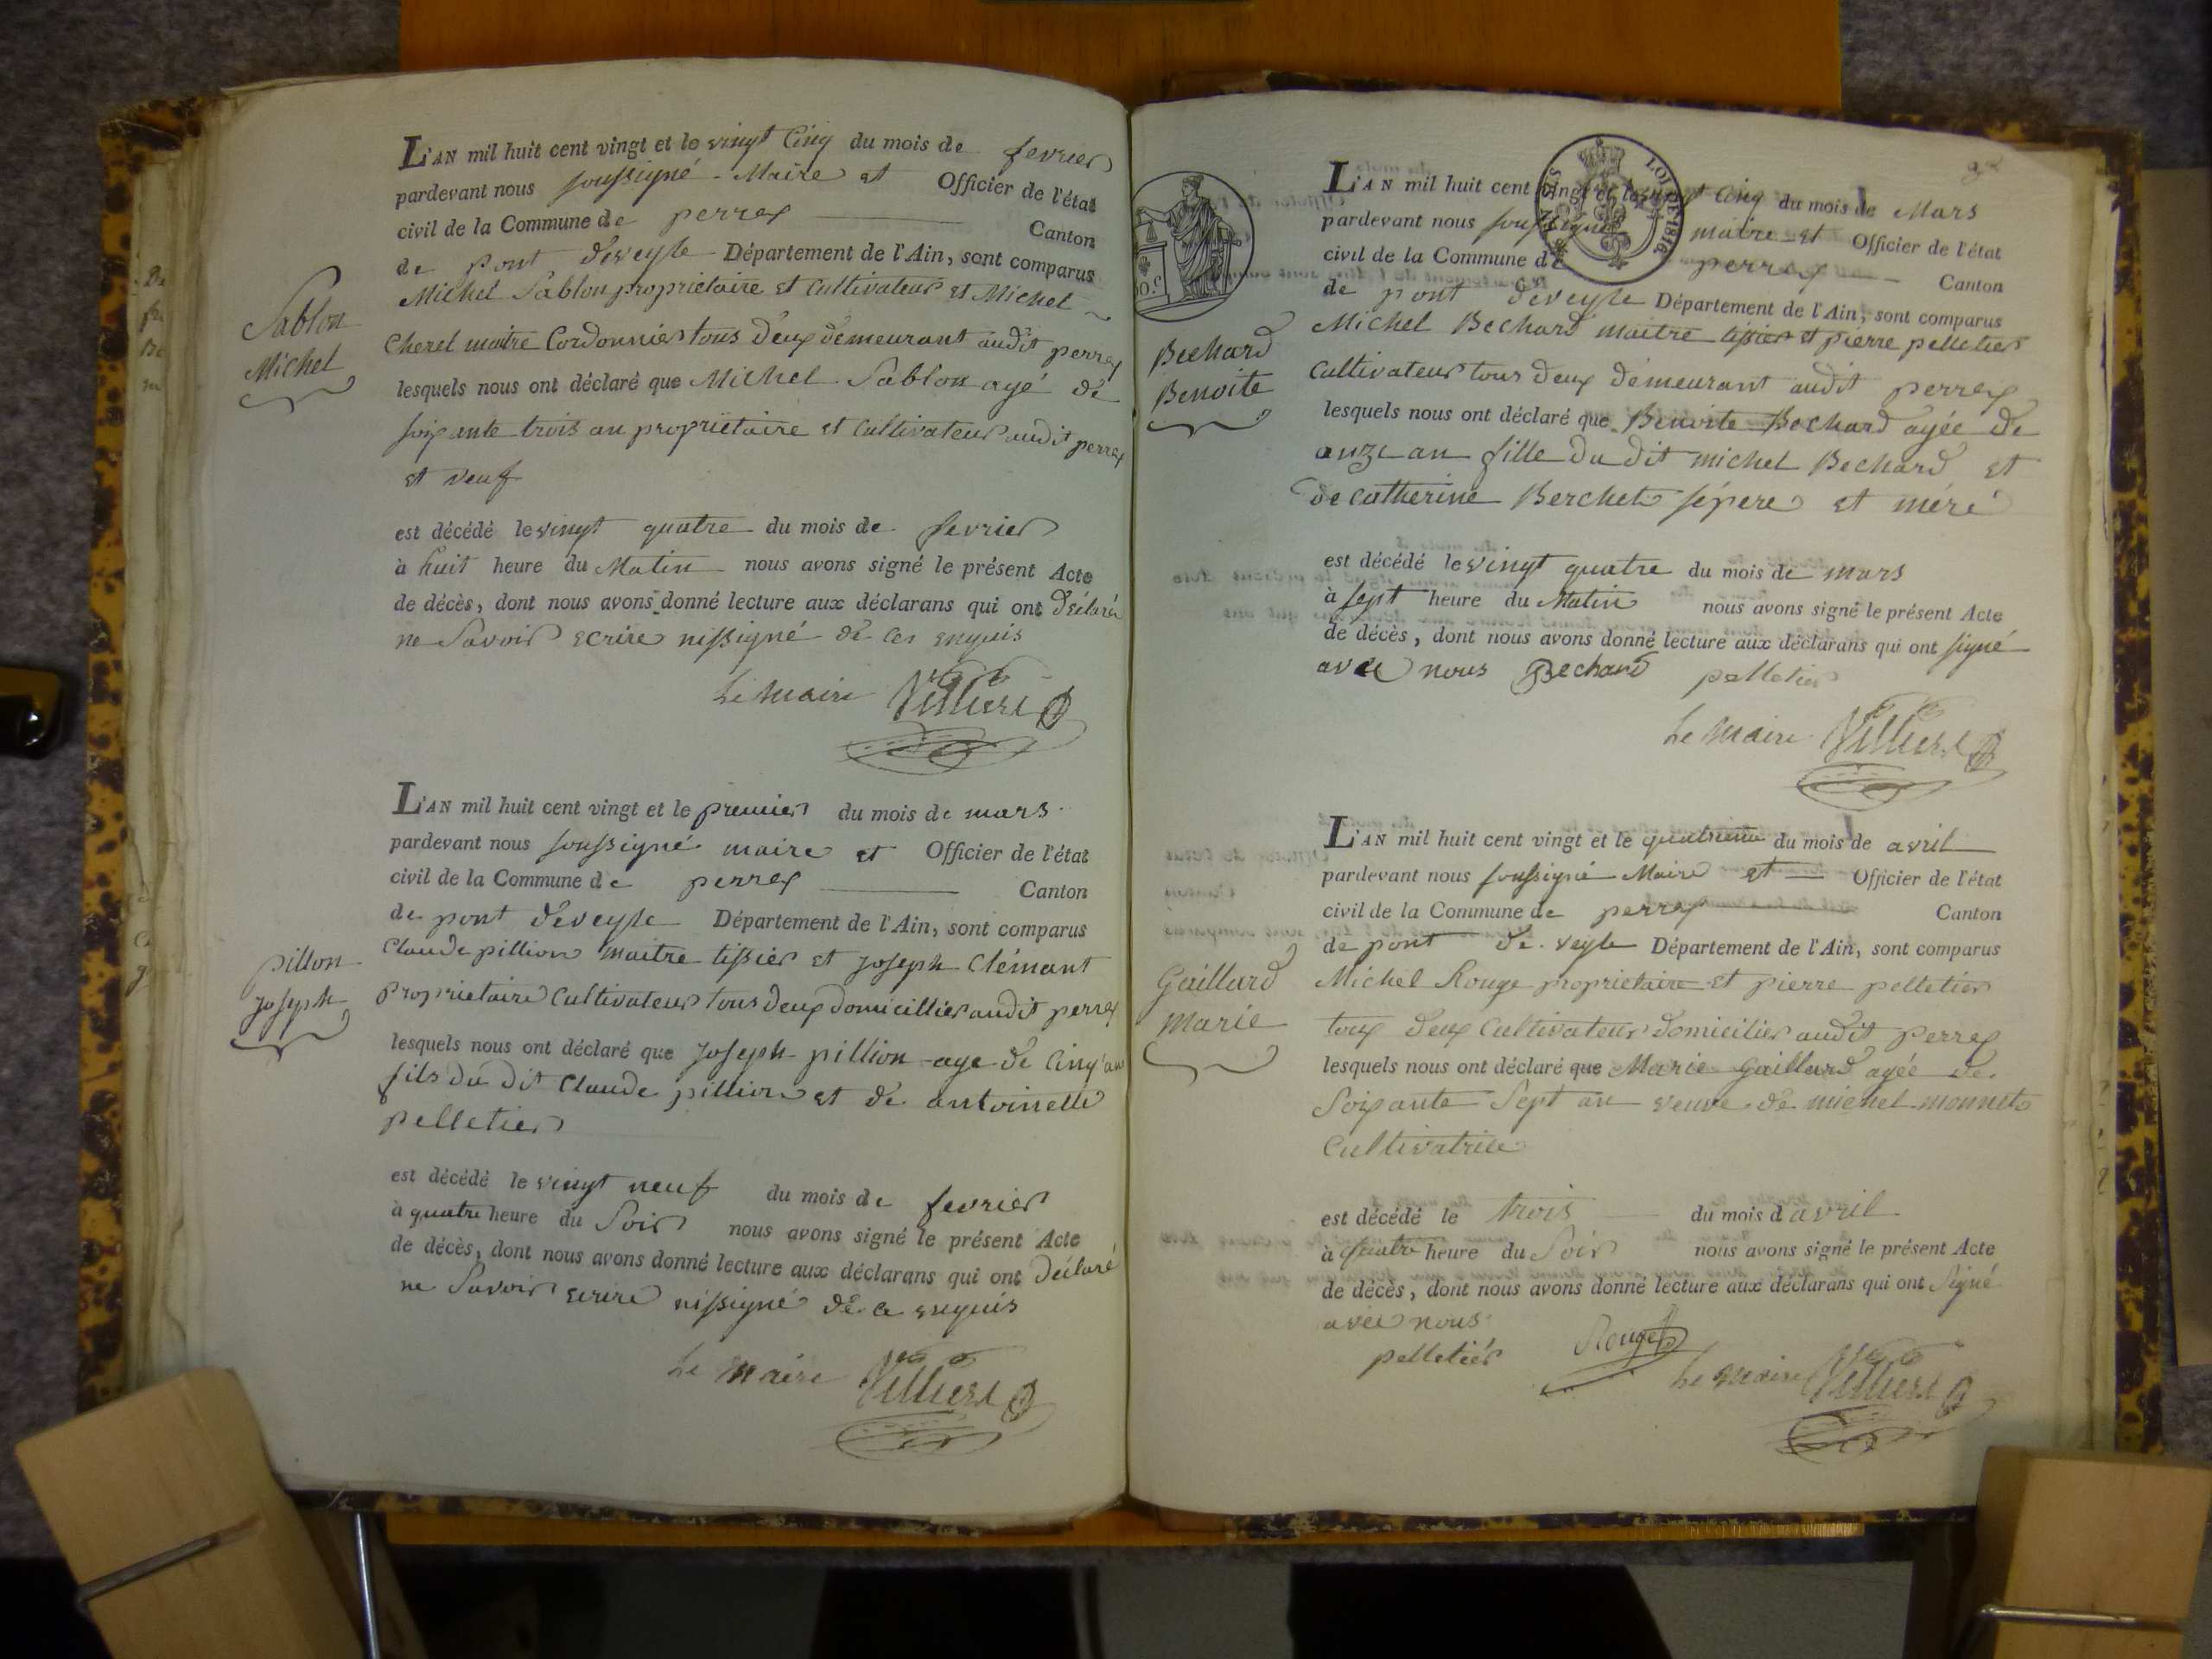 L'AN mil huit cent vingt et le vingt Cinq du mois de fevrier
pardevant nous soussigné Maire et Officier de l'état
civil de la Commune de perrex Canton
de pont deveyle Département de l'Ain, sont comparus
Michel Sablon proprietaire et Cultivateur et Michel
Cherel maitre Cordonnier tous deux demeurant audit perrex
lesquels nous ont déclaré que Michel Sablon agé de
soixante trois an proprietaire et cultivateur audit perrex
et veuf
Sablon
Michel
est décédé le vingt quatre du mois de fevrier
à huit heure du Matin nous avons signé le présent Acte
de décès, dont nous avons donné lecture aux déclarans qui ont déclaré
ne Savoir ecrire ni signé de ces enquis
Le Maire Villiert
L'AN mil huit cent vingt et le premier du mois de mars
pardevant nous soussigné maire et Officier de l'état
civil de la Commune de perrex Canton
de pont deveyle Département de l'Ain, sont comparus
Claude pillion maitre tissier et Joseph Clémant
Proprietaire Cultivateur tous deux domicillier audit perrex
lesquels nous ont déclaré que Joseph pillion age de Cinq an
fils du dit Claude pillion et de antoinette
pelletier
pillon
Joseph
est décédé le vingt neuf du mois de fevrier
à quatre heure du Soir nous avons signé le présent Acte
de décès, dont nous avons donné lecture aux déclarans qui ont déclaré
ne Savoir ecrire ni signé de ce enquis
Le Maire Villiert
LOI DE 1816
L'AN mil huit cent vingt et le vingt Cinq du mois de Mars
pardevant nous soussigné maire et Officier de l'état
civil de la Commune de perrex Canton
de pont deveyle Département de l'Ain, sont comparus
Michel Bechard maitre tissier et pierre pelletier
Cultivateur tous deux demeurant audit perrex
lesquels nous ont déclaré que Benoite Bechard agée de
onze an fille du dit michel Bechard et
de catherine Berchet sépere et méré
Bechard
Benoite
est décédé le vingt quatre du mois de mars
à sept heure du Matin nous avons signé le présent Acte
de décès, dont nous avons donné lecture aux déclarans qui ont signé
avec nous Bechard pelletier
Le Maire Villiert
L'AN mil huit cent vingt et le quatrieme du mois de avril
pardevant nous soussigné Maire et Officier de l'état
civil de la Commune de perrex Canton
de pont de veyle Département de l'Ain, sont comparus
Michel Rouge proprietaire et pierre pelletier
toux deux Cultivateur domicilier audit perrex
lesquels nous ont déclaré que Marie Gaillard agée de
Soixante Sept an veuve de michel monnet
Cultivatrice
Gaillard
Marie
est décédé le trois du mois d avril
à quatre heure du Soir nous avons signé le présent Acte
de décès, dont nous avons donné lecture aux déclarans qui ont Signé
avec nous
pelletier Rouge Le Maire Villiert